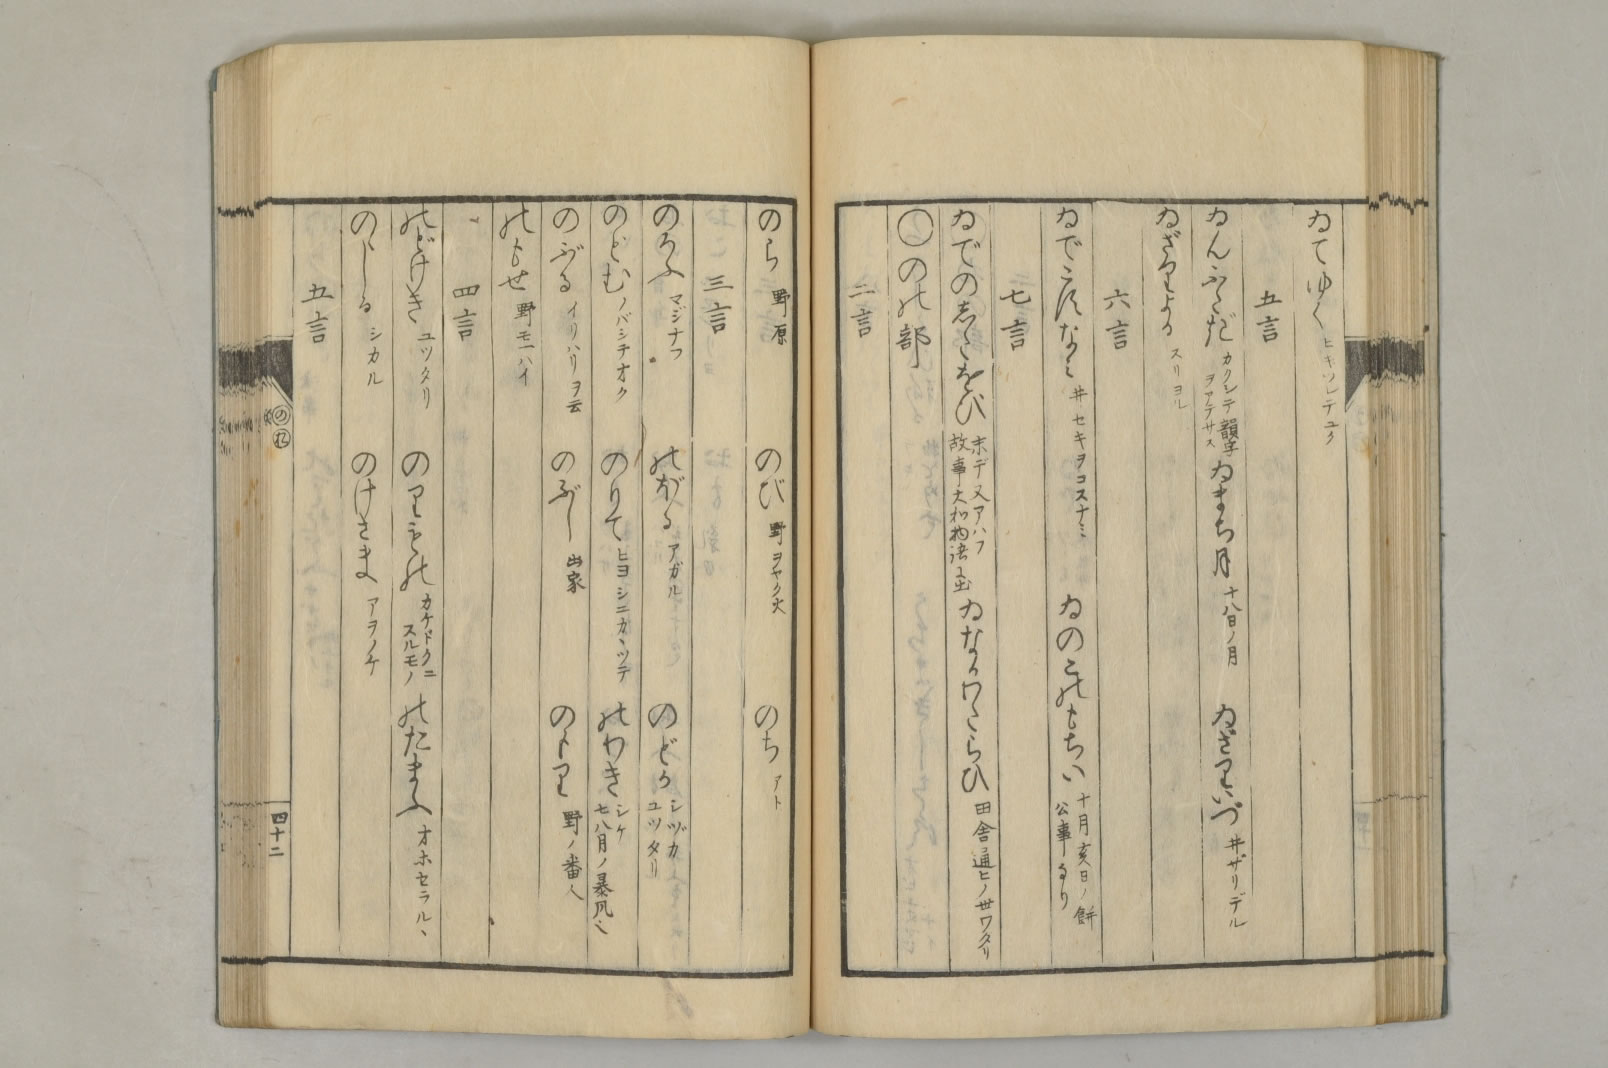 ゐてゆく ヒキツレテユク
五言
ゐんふたぎ カクシテ韻字ヲアテサス ゐまち月 十八日ノ月 ゐざりいづ 井ザリデル
ゐざりよる スリヨル
六言
ゐでこすなみ 井セキヲコスナミ ゐのこのもちい 十月亥日ノ餅公事なり
七言
ゐでのしたおび 故事大和物語ニ出 ゐなかわたらひ 田舎通ヒノ世ワタリ
〇のの部
二言
のら 野原 のび 野ヲヤク火 のち アト
三言
のろふ マジナフ のぼる アガル のどか シヅカ ユツタリ
のどむ ノバシテオク のりて のわき シケ 七八月ノ暴風也
のぶる イリハリヲ云 のぶし 出家 のもり 野ノ番人
のもせ 野モ一ハイ
四言
のどけき ユツタリ のりもの カケドクニスルモノ のたまふ オホセラルヽ
のゝしる シカル のけさま アヲノケ
五言
四十二